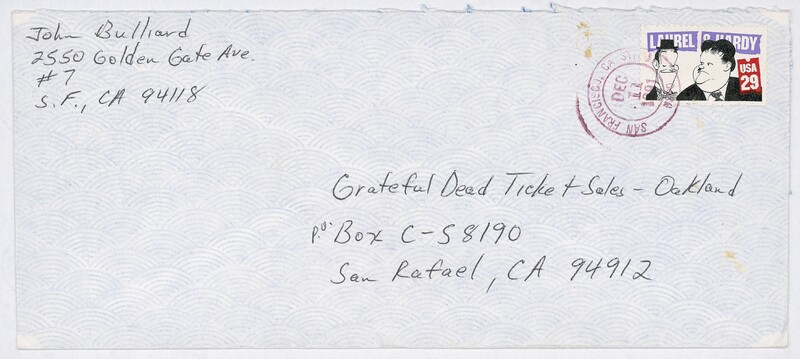 John Bulliard
2550 Golden Gate Ave.
#7
S.F., CA 94118
LAUREL & HARDY
USA
29
SAN FRANCISCO, CA
DEC
11
1991
Grateful Dead Ticket Sales - Oakland
P.O. Box C-S8190
San Rafael, CA 94912